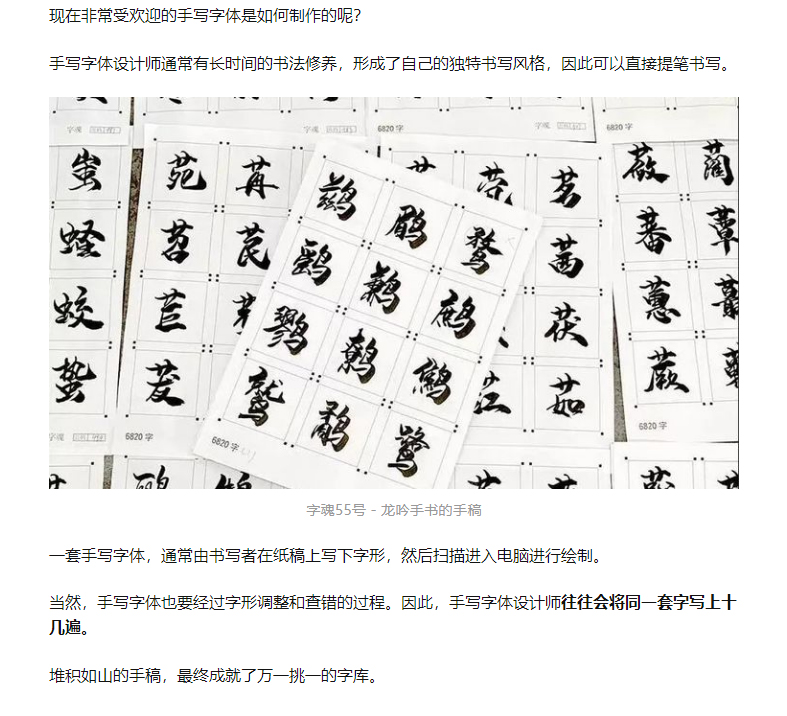 现在非常受欢迎的手写字体是如何制作的呢？
手写字体设计师通常有长时间的书法修养，形成了自己的独特书写风格，因此可以直接提笔书写。
字魂
字魂
6820 字
字魂
6820 字
蚩 苑 苒 鹚 鹛 鹜 茗 蔹 蔺
蛏 苕 苠 鹞 鹣 鹧 茜 蕃 蕈
蛟 苣 鹨 鹩 鹪 茯 蕙 蕞
蛰 茇 鹫 鹬 鹭 茳 茹 蕨
字魂
6820 字
6820 字
6820 字
字魂55号 - 龙吟手书的手稿
一套手写字体，通常由书写者在纸稿上写下字形，然后扫描进入电脑进行绘制。
当然，手写字体也要经过字形调整和查错的过程。因此，手写字体设计师往往会将同一套字写上十
几遍。
堆积如山的手稿，最终成就了万一挑一的字库。